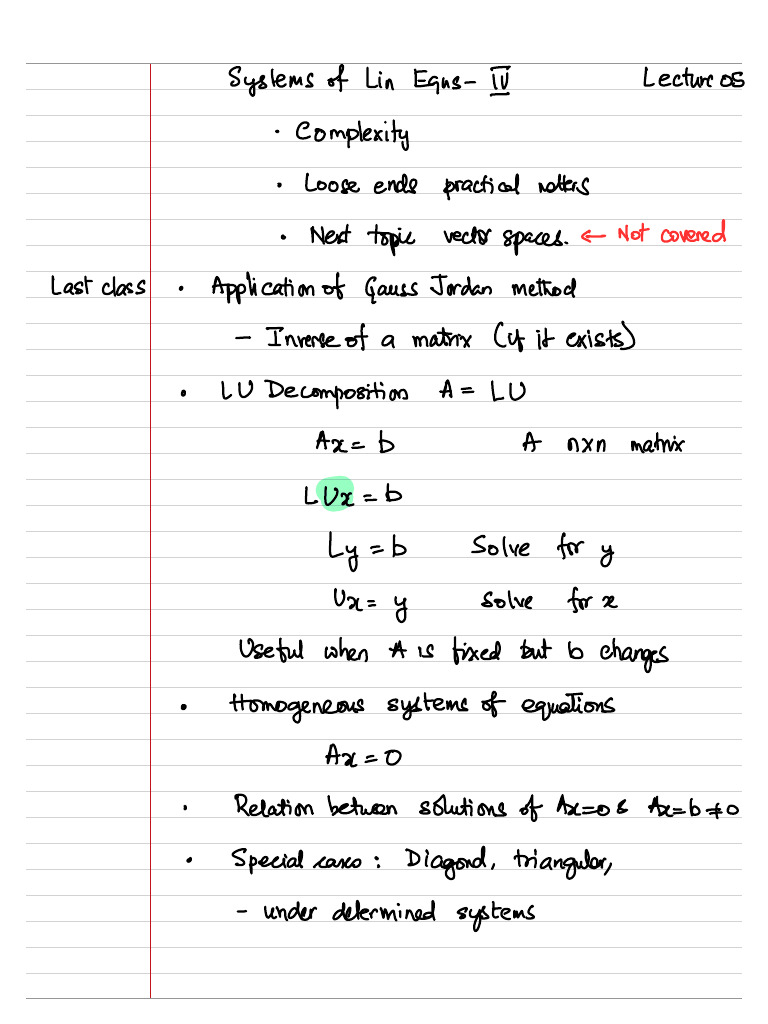 Systems of Lin Eqns - IV Lecture 05
• Complexity
• Loose ends practical matters
• Next topic vector spaces. ← Not covered
Last class • Application of Gauss Jordan method
- Inverse of a matrix (if it exists)
• LU Decomposition A = LU
Ax = b A nxn matrix
LUx = b
Ly = b Solve for y
Ux = y Solve for x
Useful when A is fixed but b changes
• Homogeneous systems of equations
Ax = 0
• Relation between solutions of Ax=0 & Ax=b≠0
• Special cases : Diagonal, triangular,
- under determined systems